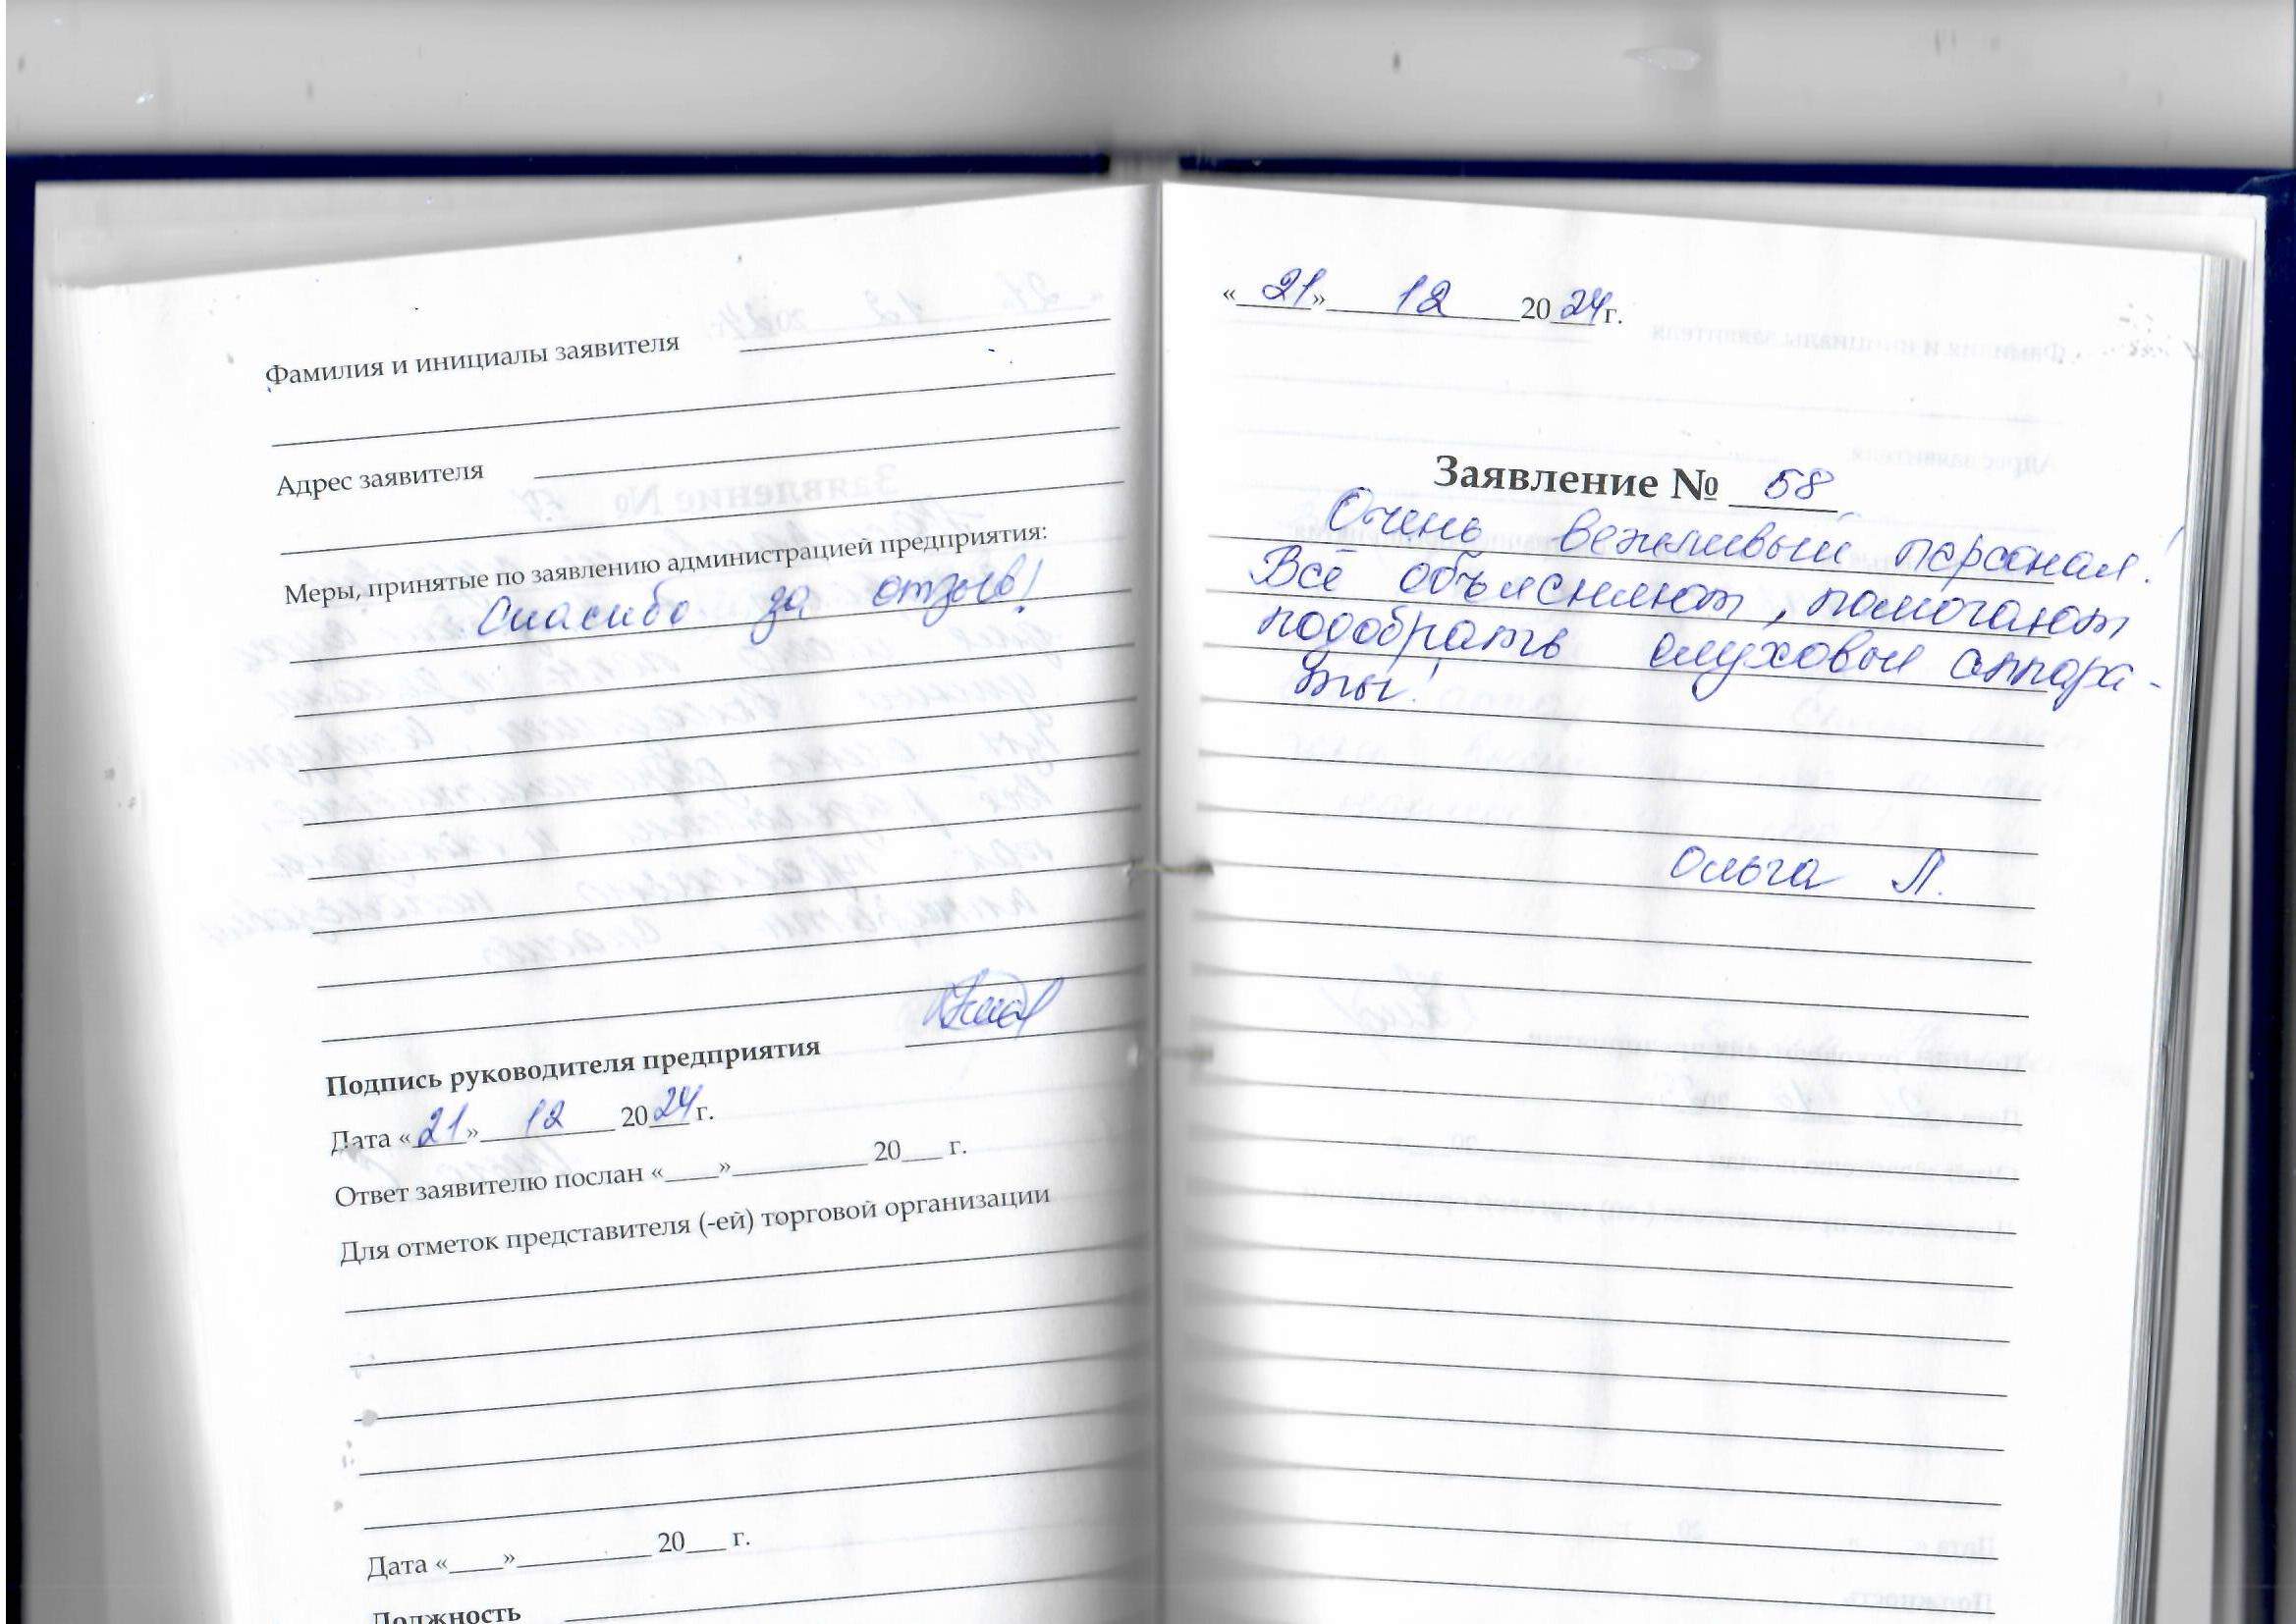 Фамилия и инициалы заявителя
Адрес заявителя
Меры, принятые по заявлению администрацией предприятия:
Спасибо за отзыв!
Подпись руководителя предприятия
Дата «21» 12 2024 г.
Ответ заявителю послан «____»__________ 20___ г.
Для отметок представителя (-ей) торговой организации
Дата «____»__________ 20___ г.
Должность
«21» 12 2024 г.
Заявление № 58
Очень вежливый персонал!
Всё объясняют, помогают
подобрать слуховые аппара-
ты!
Ольга Л.